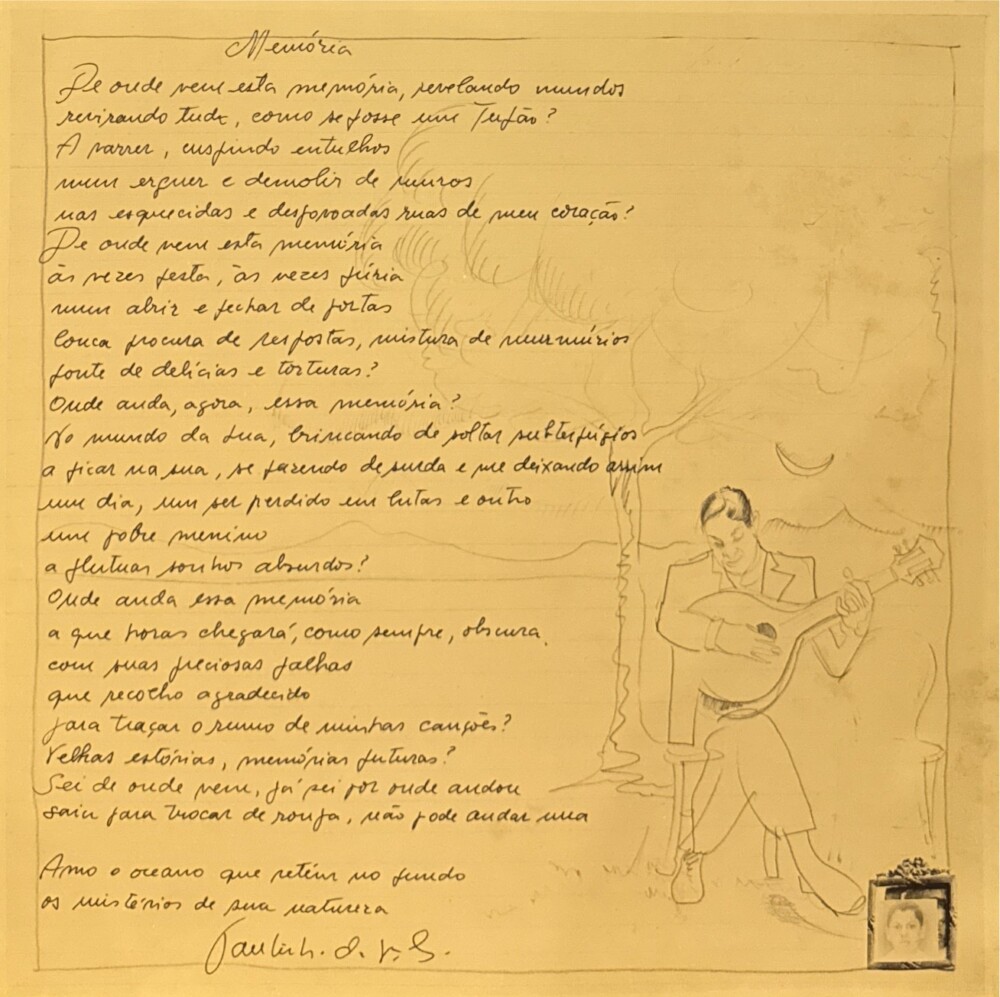 Memória
De onde vem esta memória, revelando mundos
revirando tudo, como se fosse um Tufão?
A varrer, cuspindo entulhos
num erguer e demolir de muros
nas esquecidas e despovoadas ruas de meu coração?
De onde vem esta memória
às vezes festa, às vezes fúria
num abrir e fechar de portas
louca procura de respostas, mistura de murmúrios
fonte de delícias e torturas?
Onde anda, agora, essa memória?
No mundo da lua, brincando de soltar subterfúgios
a ficar na sua, se fazendo de surda e me deixando assim
um dia, um ser perdido em lutas e outro
um pobre menino
a flutuar sonhos absurdos?
Onde anda essa memória
a que horas chegará, como sempre, obscura,
com suas preciosas falhas
que recolho agradecido
para traçar o rumo de minhas canções?
Velhas estórias, memórias futuras?
Sei de onde vem, já sei por onde andou
saiu para trocar de roupa, não pode andar nua
Amo o oceano que retém no fundo
os mistérios de sua natureza
Paulinh. d. V.